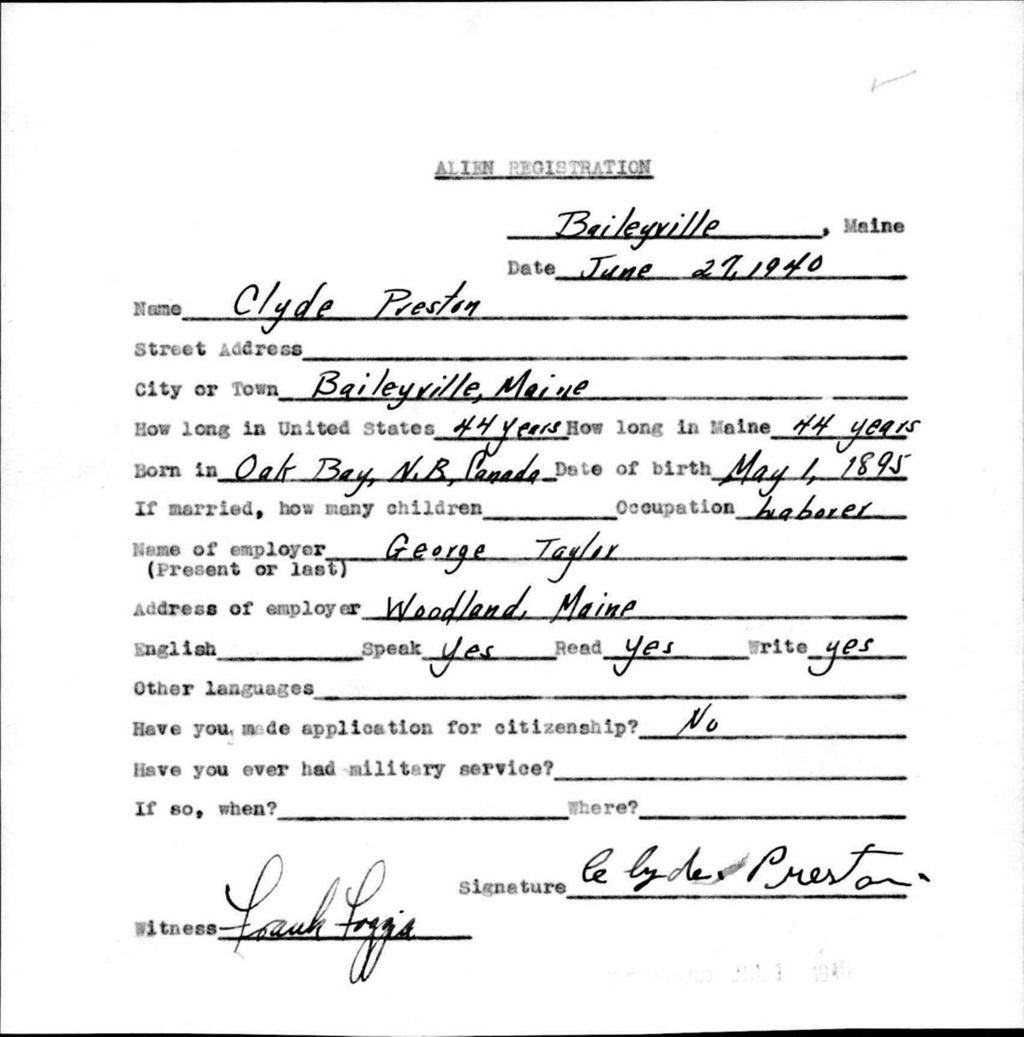 ALIEN REGISTRATION
Baileyville, Maine
Date June 27, 1940
Name Clyde Preston
Street Address
City or Town Baileyville, Maine
How long in United States 44 years How long in Maine 44 years
Born in Oak Bay, N.B., Canada Date of birth May 1, 1895
If married, how many children Occupation Laborer
Name of employer George Taylor
(Present or last)
Address of employer Woodland, Maine
English Speak yes Read yes Write yes
Other languages
Have you made application for citizenship? No
Have you ever had military service?
If so, when? Where?
Signature Clyde Preston
Witness Frank